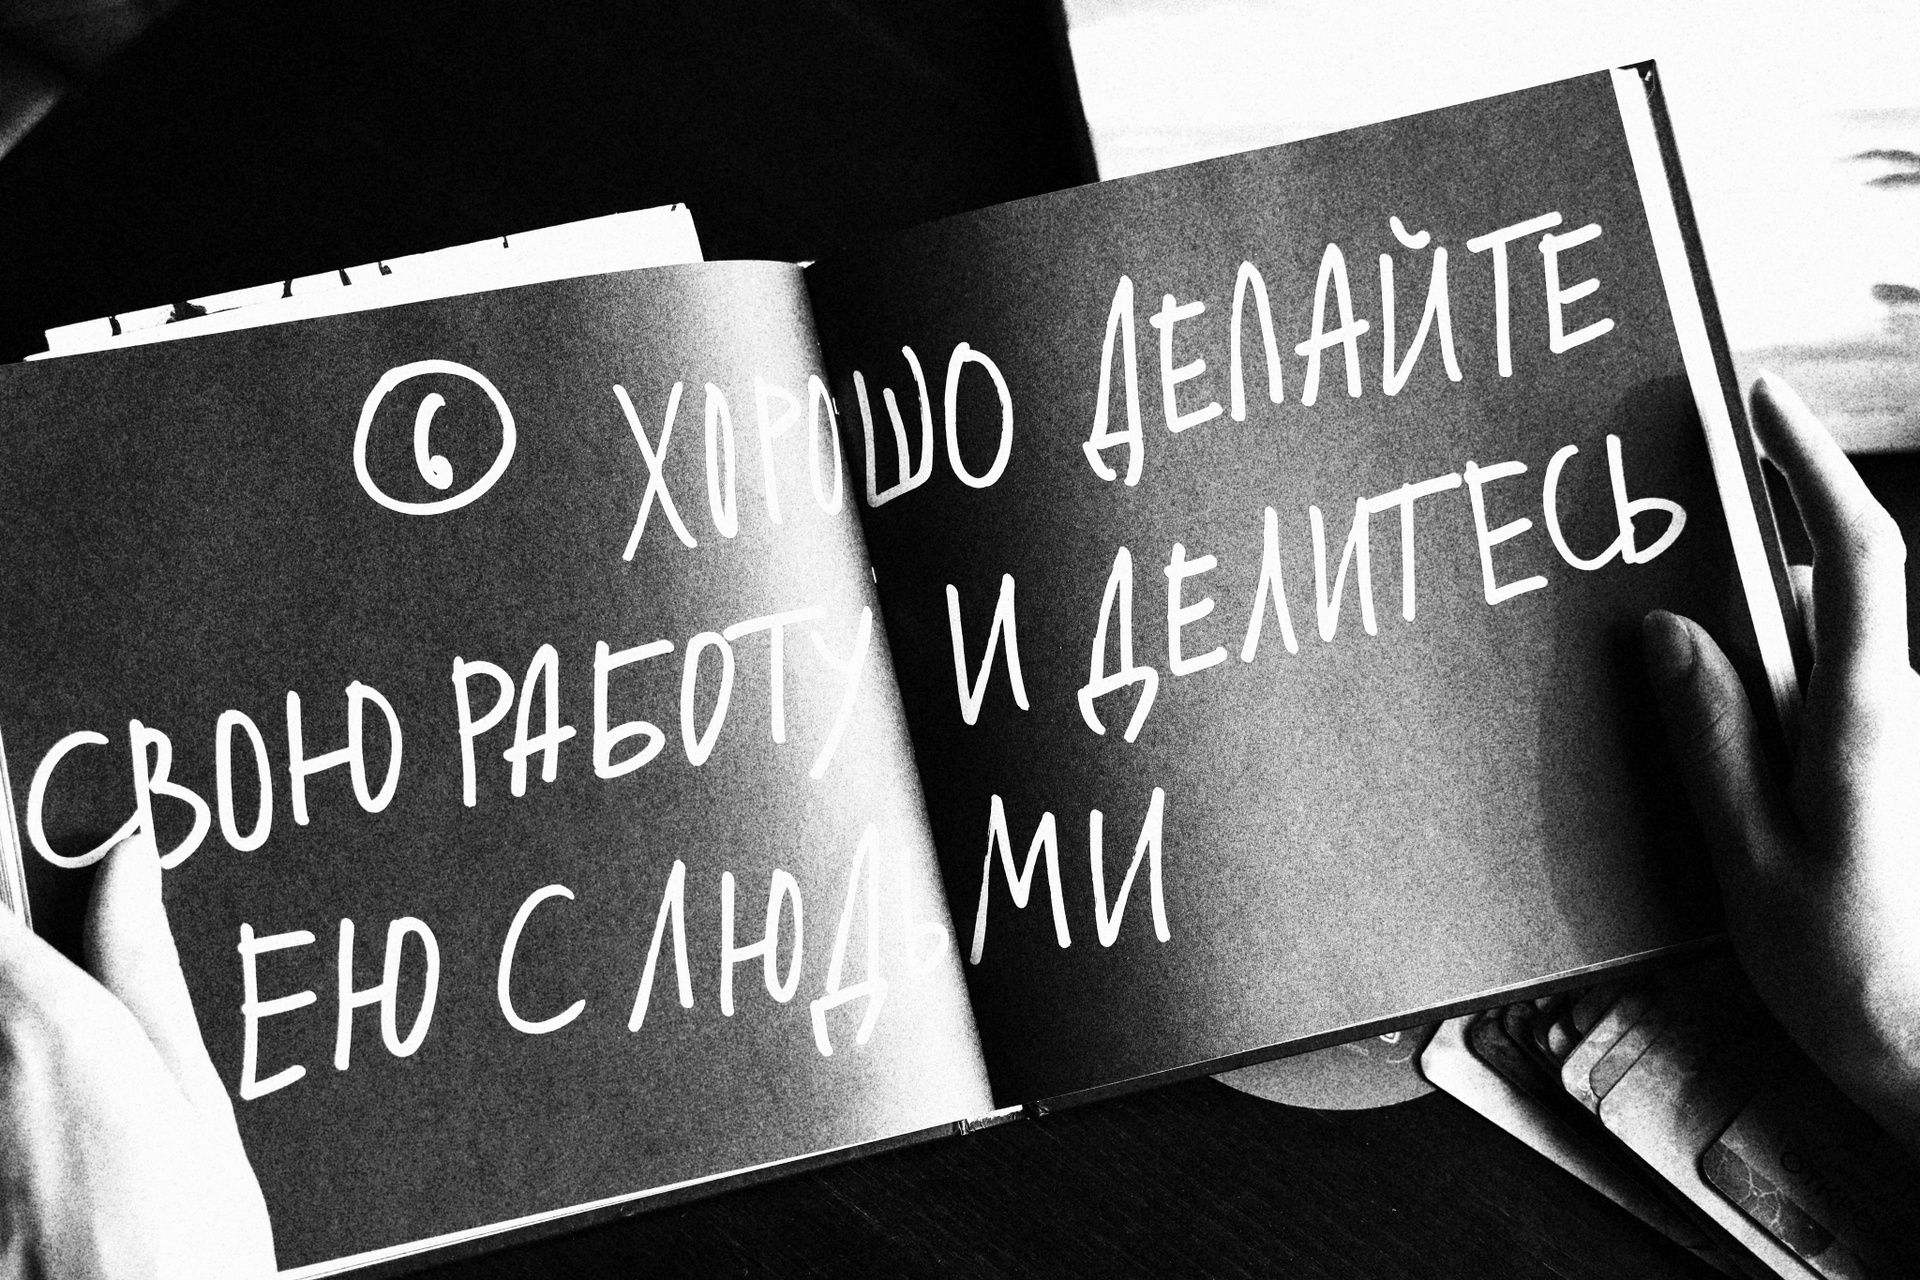 6 ХОРОШО ДЕЛАЙТЕ
СВОЮ РАБОТУ И ДЕЛИТЕСЬ
ЕЮ С ЛЮДЬМИ